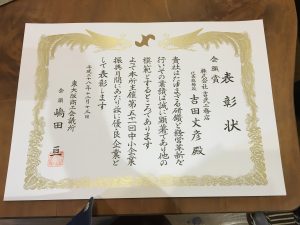 表彰状
会頭賞
株式会社 吉武工務店
代表取締役
吉田文彦 殿
貴社はたゆまざる研鑽と経営革新を
行いその業績は誠に顕著であり他の
模範とするところであります
よって本所主催第五十一回中小企業
振興月間にあたり茲に優良企業と
して表彰します
平成二十八年十一月十八日
東大阪商工会議所
会頭 嶋田 亘